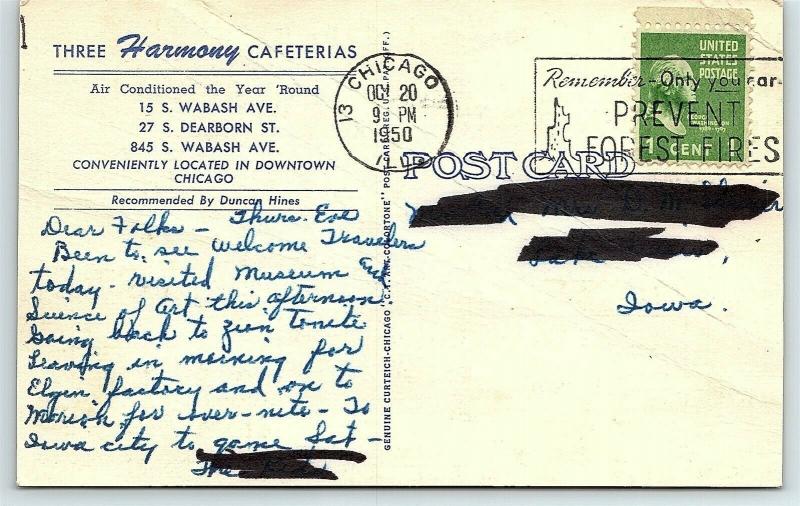 THREE Harmony CAFETERIAS
Air Conditioned the Year 'Round
15 S. WABASH AVE.
27 S. DEARBORN ST.
845 S. WABASH AVE.
CONVENIENTLY LOCATED IN DOWNTOWN
CHICAGO
Recommended By Duncan Hines
Dear Folks - Thurs. Eve
Been to see welcome Travelers
today - visited Museum and
Science of Art this afternoon
Going back to zion tonite
Leaving in morning for
Elgin factory and on to
Marion for over-nite - To
Iowa city to game Sat -
The
GENUINE CURTEICH-CHICAGO "C.T. ART-COLORTONE" POST CARD (REG. U.S. PAT. OFF.)
CHICAGO
13
OCT 20
9 PM
1950
ILL
Remember - Only you can
PREVENT
FOREST FIRES
UNITED
STATES
POSTAGE
GEORGE
WASHINGTON
1 CENT
POST CARD
Iowa.